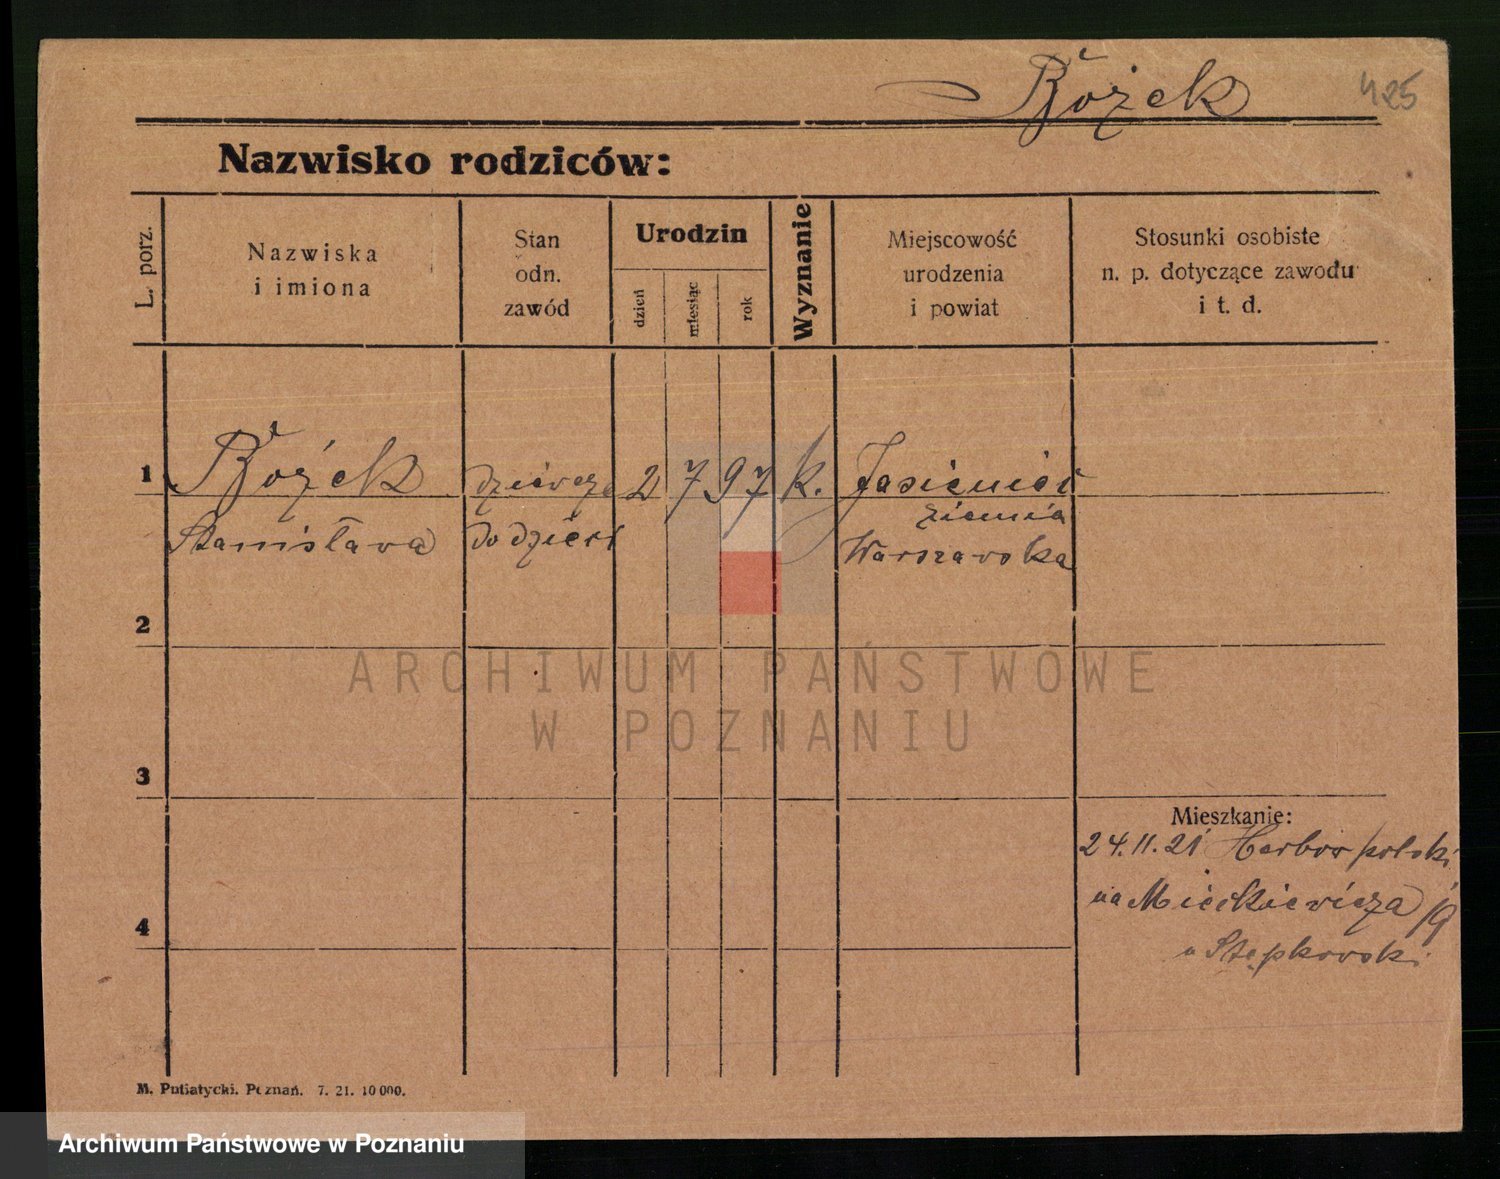 Bożek 425
Nazwisko rodziców:
L. porz.
Nazwiska
i imiona
Stan
odn.
zawód
Urodzin
dzień
miesiąc
rok
Wyznanie
Miejscowość
urodzenia
i powiat
Stosunki osobiste
n. p. dotyczące zawodu
i t. d.
1 Bożek dziewczę 2 7 97 k. Jasieniec
ziemia
Stanisława do dzieci Warszawska
2
ARCHIWUM PAŃSTWOWE
W POZNANIU
3
Mieszkanie:
24.11.21 Harbor polski
na Mickiewicza
4
u Stępkowski
M. Putiatycki. Poznań. 7. 21. 10 000.
Archiwum Państwowe w Poznaniu